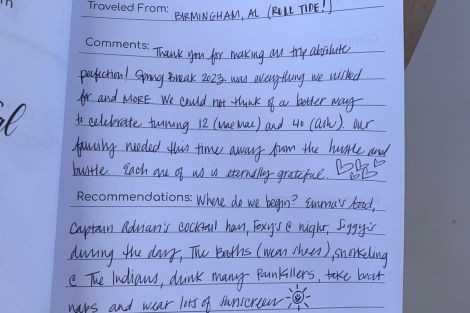 Traveled From: BIRMINGHAM, AL (ROLL TIDE!)
Comments: Thank you for making our trip absolute
perfection! Spring Break 2023 was everything we wished
for and MORE. We could not think of a better way
to celebrate turning 12 (Mae Mae) and 40 (Ash). Our
family needed this time away from the hustle and
bustle. Each one of us is eternally grateful.
Recommendations: Where do we begin? Emma's food,
Captain Adrian's cocktail hour, Foxy's @ night, Soggy's
during the day, The Baths (wear shoes), snorkeling
@ The Indians, drink many Painkillers, take boat
naps and wear lots of sunscreen